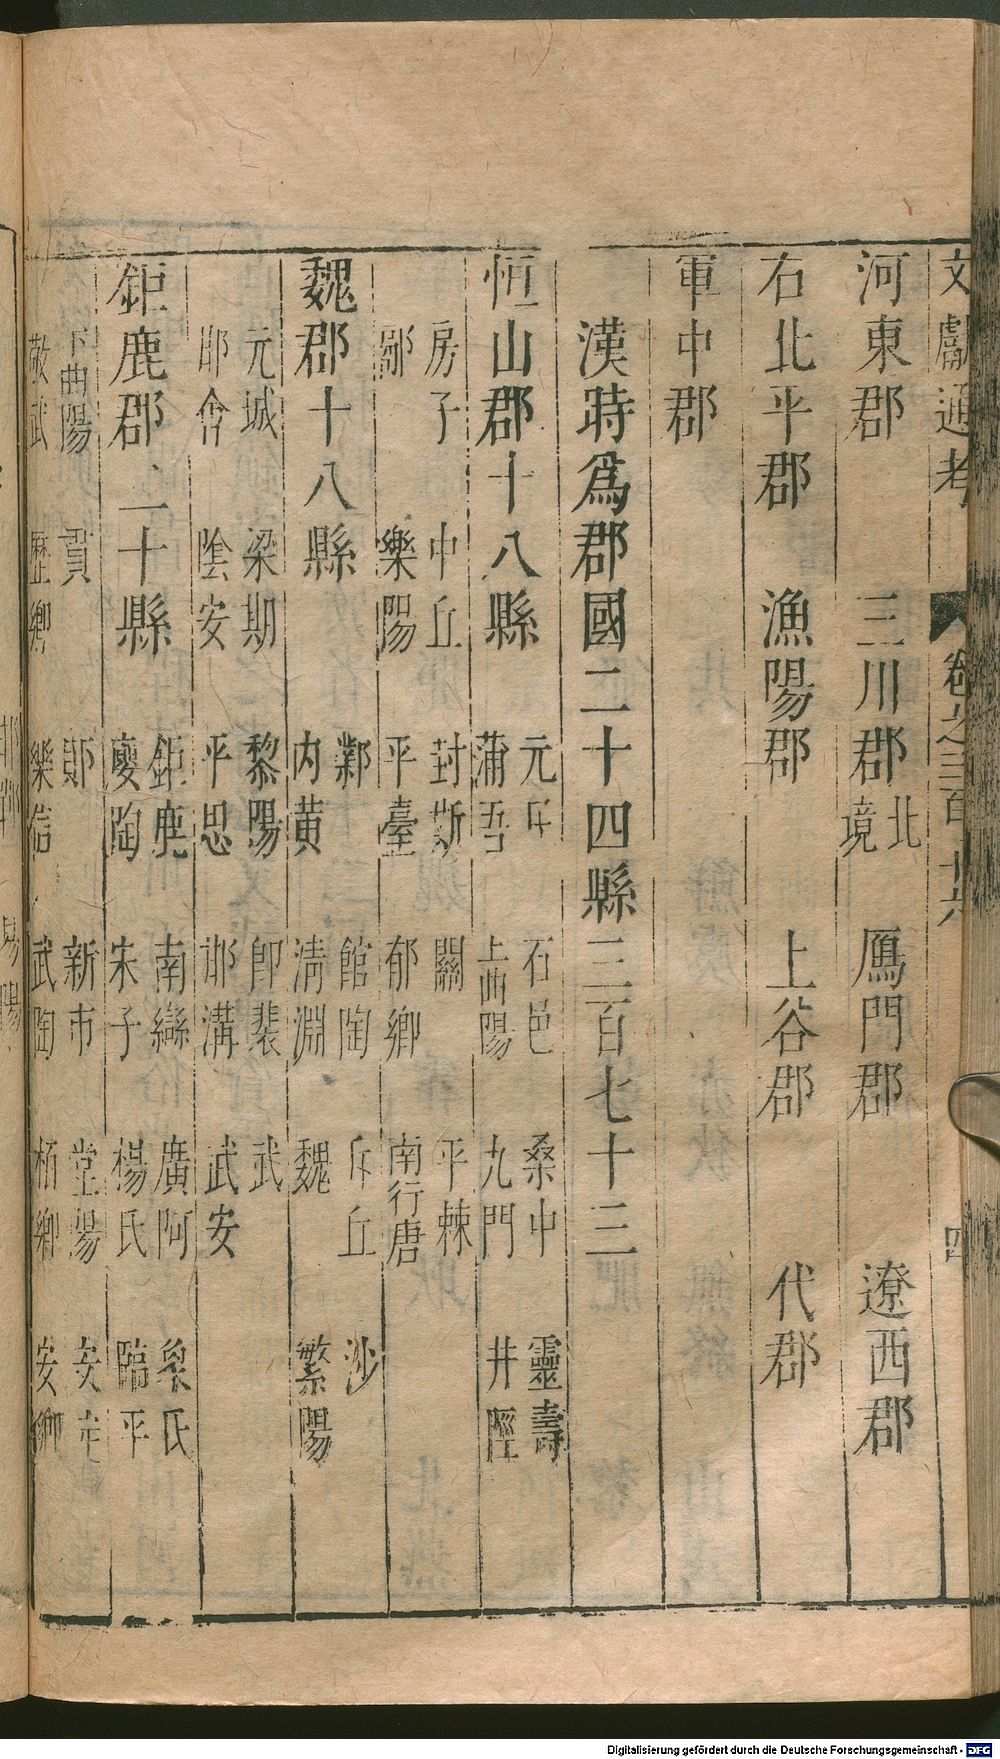 文獻通考 卷之三百十六 四
河東郡 三川郡北境 鴈門郡 遼西郡
右北平郡 漁陽郡 上谷郡 代郡
軍中郡
漢時爲郡國二十四縣三百七十三
恒山郡十八縣 元氏 石邑 桑中 靈壽
蒲吾 上曲陽 九門 井陘
房子 中丘 封斯 關 平棘
鄗 樂陽 平臺 郁鄉 南行唐
魏郡十八縣 鄴 館陶 斥丘 沙
內黃 清淵 魏 繁陽
元城 梁期 黎陽 即裴 武
邯會 陰安 平恩 邯溝 武安
鉅鹿郡二十縣 鉅鹿 南䜌 廣阿 象氏
廮陶 宋子 楊氏 臨平
下曲陽 貰 鄡 新市 堂陽 安定
敬武 歷鄉 樂信 武陶 栢鄉 安鄉
Digitalisierung gefördert durch die Deutsche Forschungsgemeinschaft - DFG